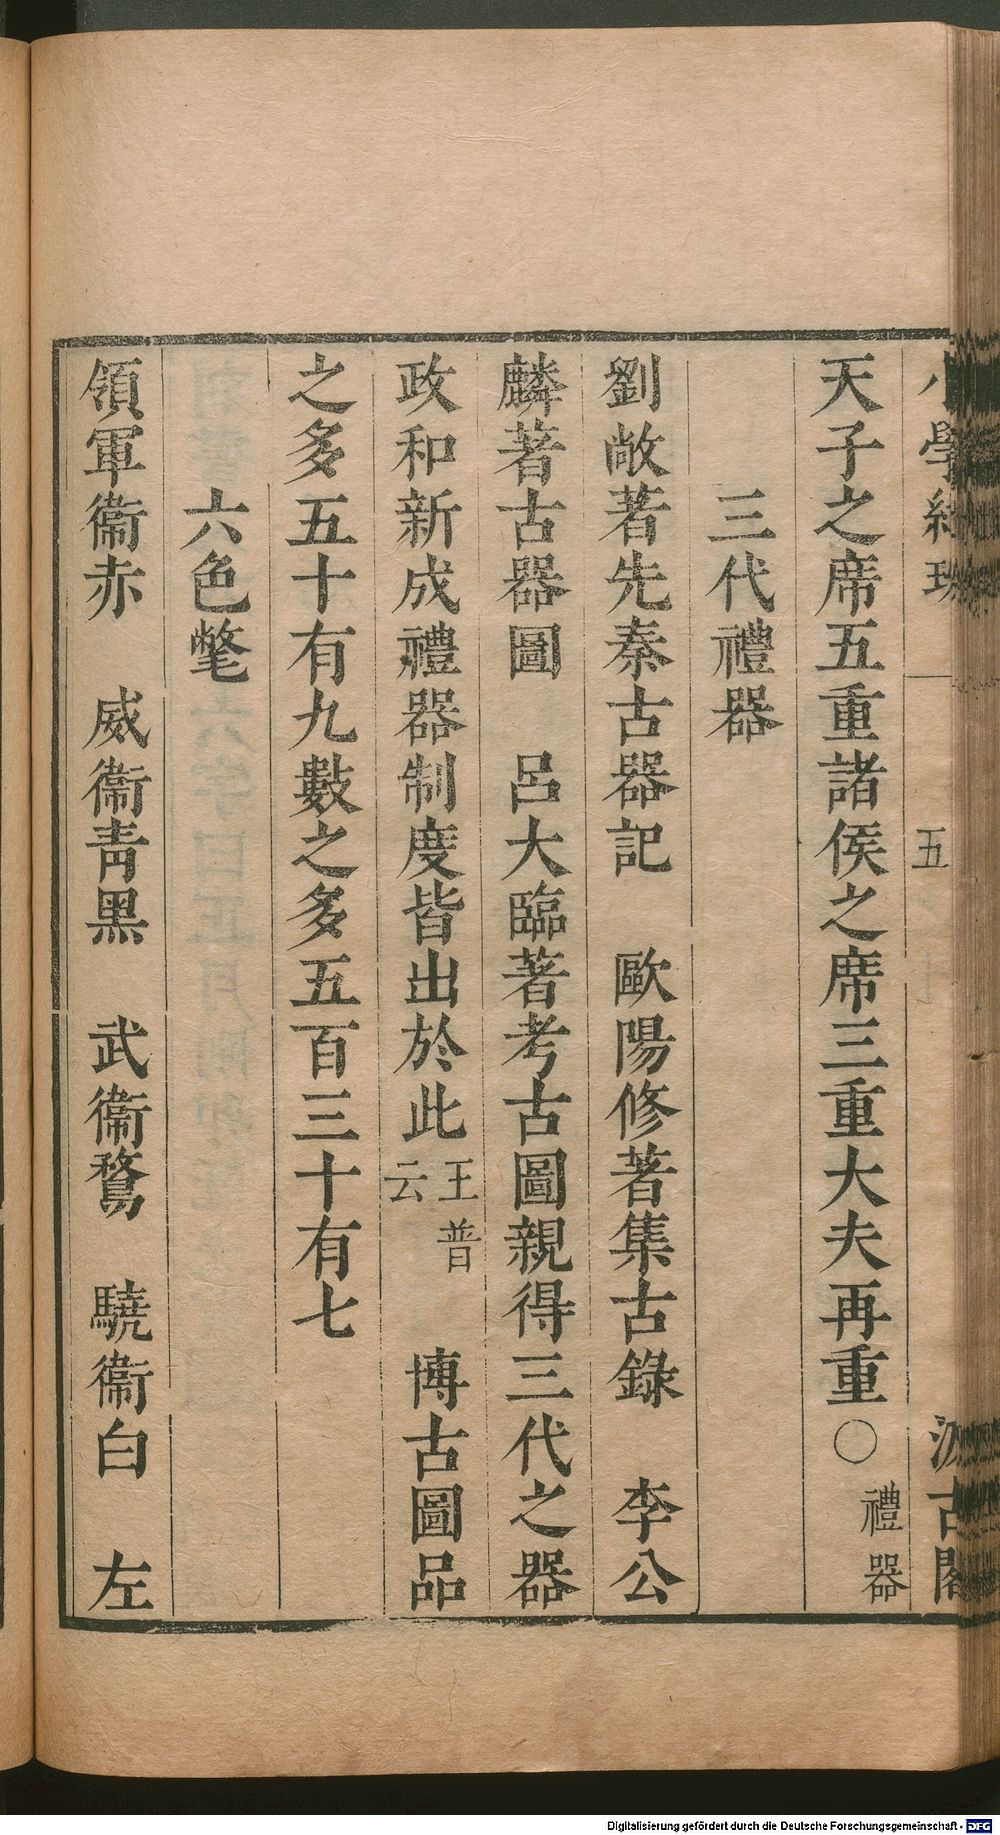 小學紺珠 五 汲古閣
天子之席五重諸侯之席三重大夫再重○禮器
三代禮器
劉敞著先秦古器記 歐陽修著集古錄 李公
麟著古器圖 呂大臨著考古圖親得三代之器
政和新成禮器制度皆出於此王普云 博古圖品
之多五十有九數之多五百三十有七
六色氅
領軍衞赤 威衞靑黑 武衞鶩 驍衞白 左
Digitalisierung gefördert durch die Deutsche Forschungsgemeinschaft - DFG